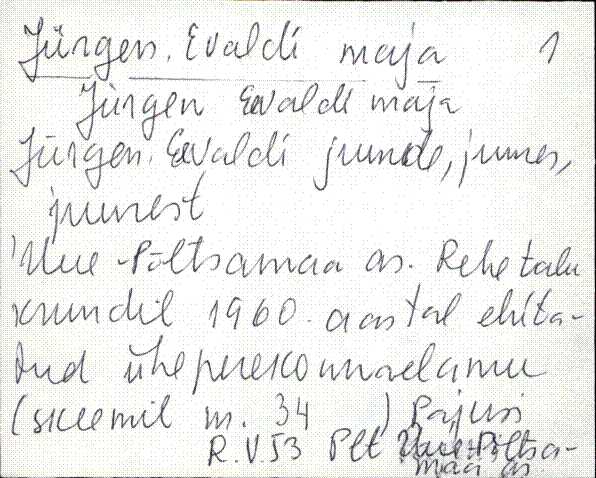 Jürgen, Evaldi maja 1
Jürgen Evaldi maja
Jürgen. Evaldi juude, juures,
juurest
Uue-Põltsamaa as. Rehe talu
krundil 1960. aastal ehita-
tud üheperekonnaelamu
(skeemil nr. 34 ) Pajusi
R.V.53 Plt Uue-Põltsa-
maa as.